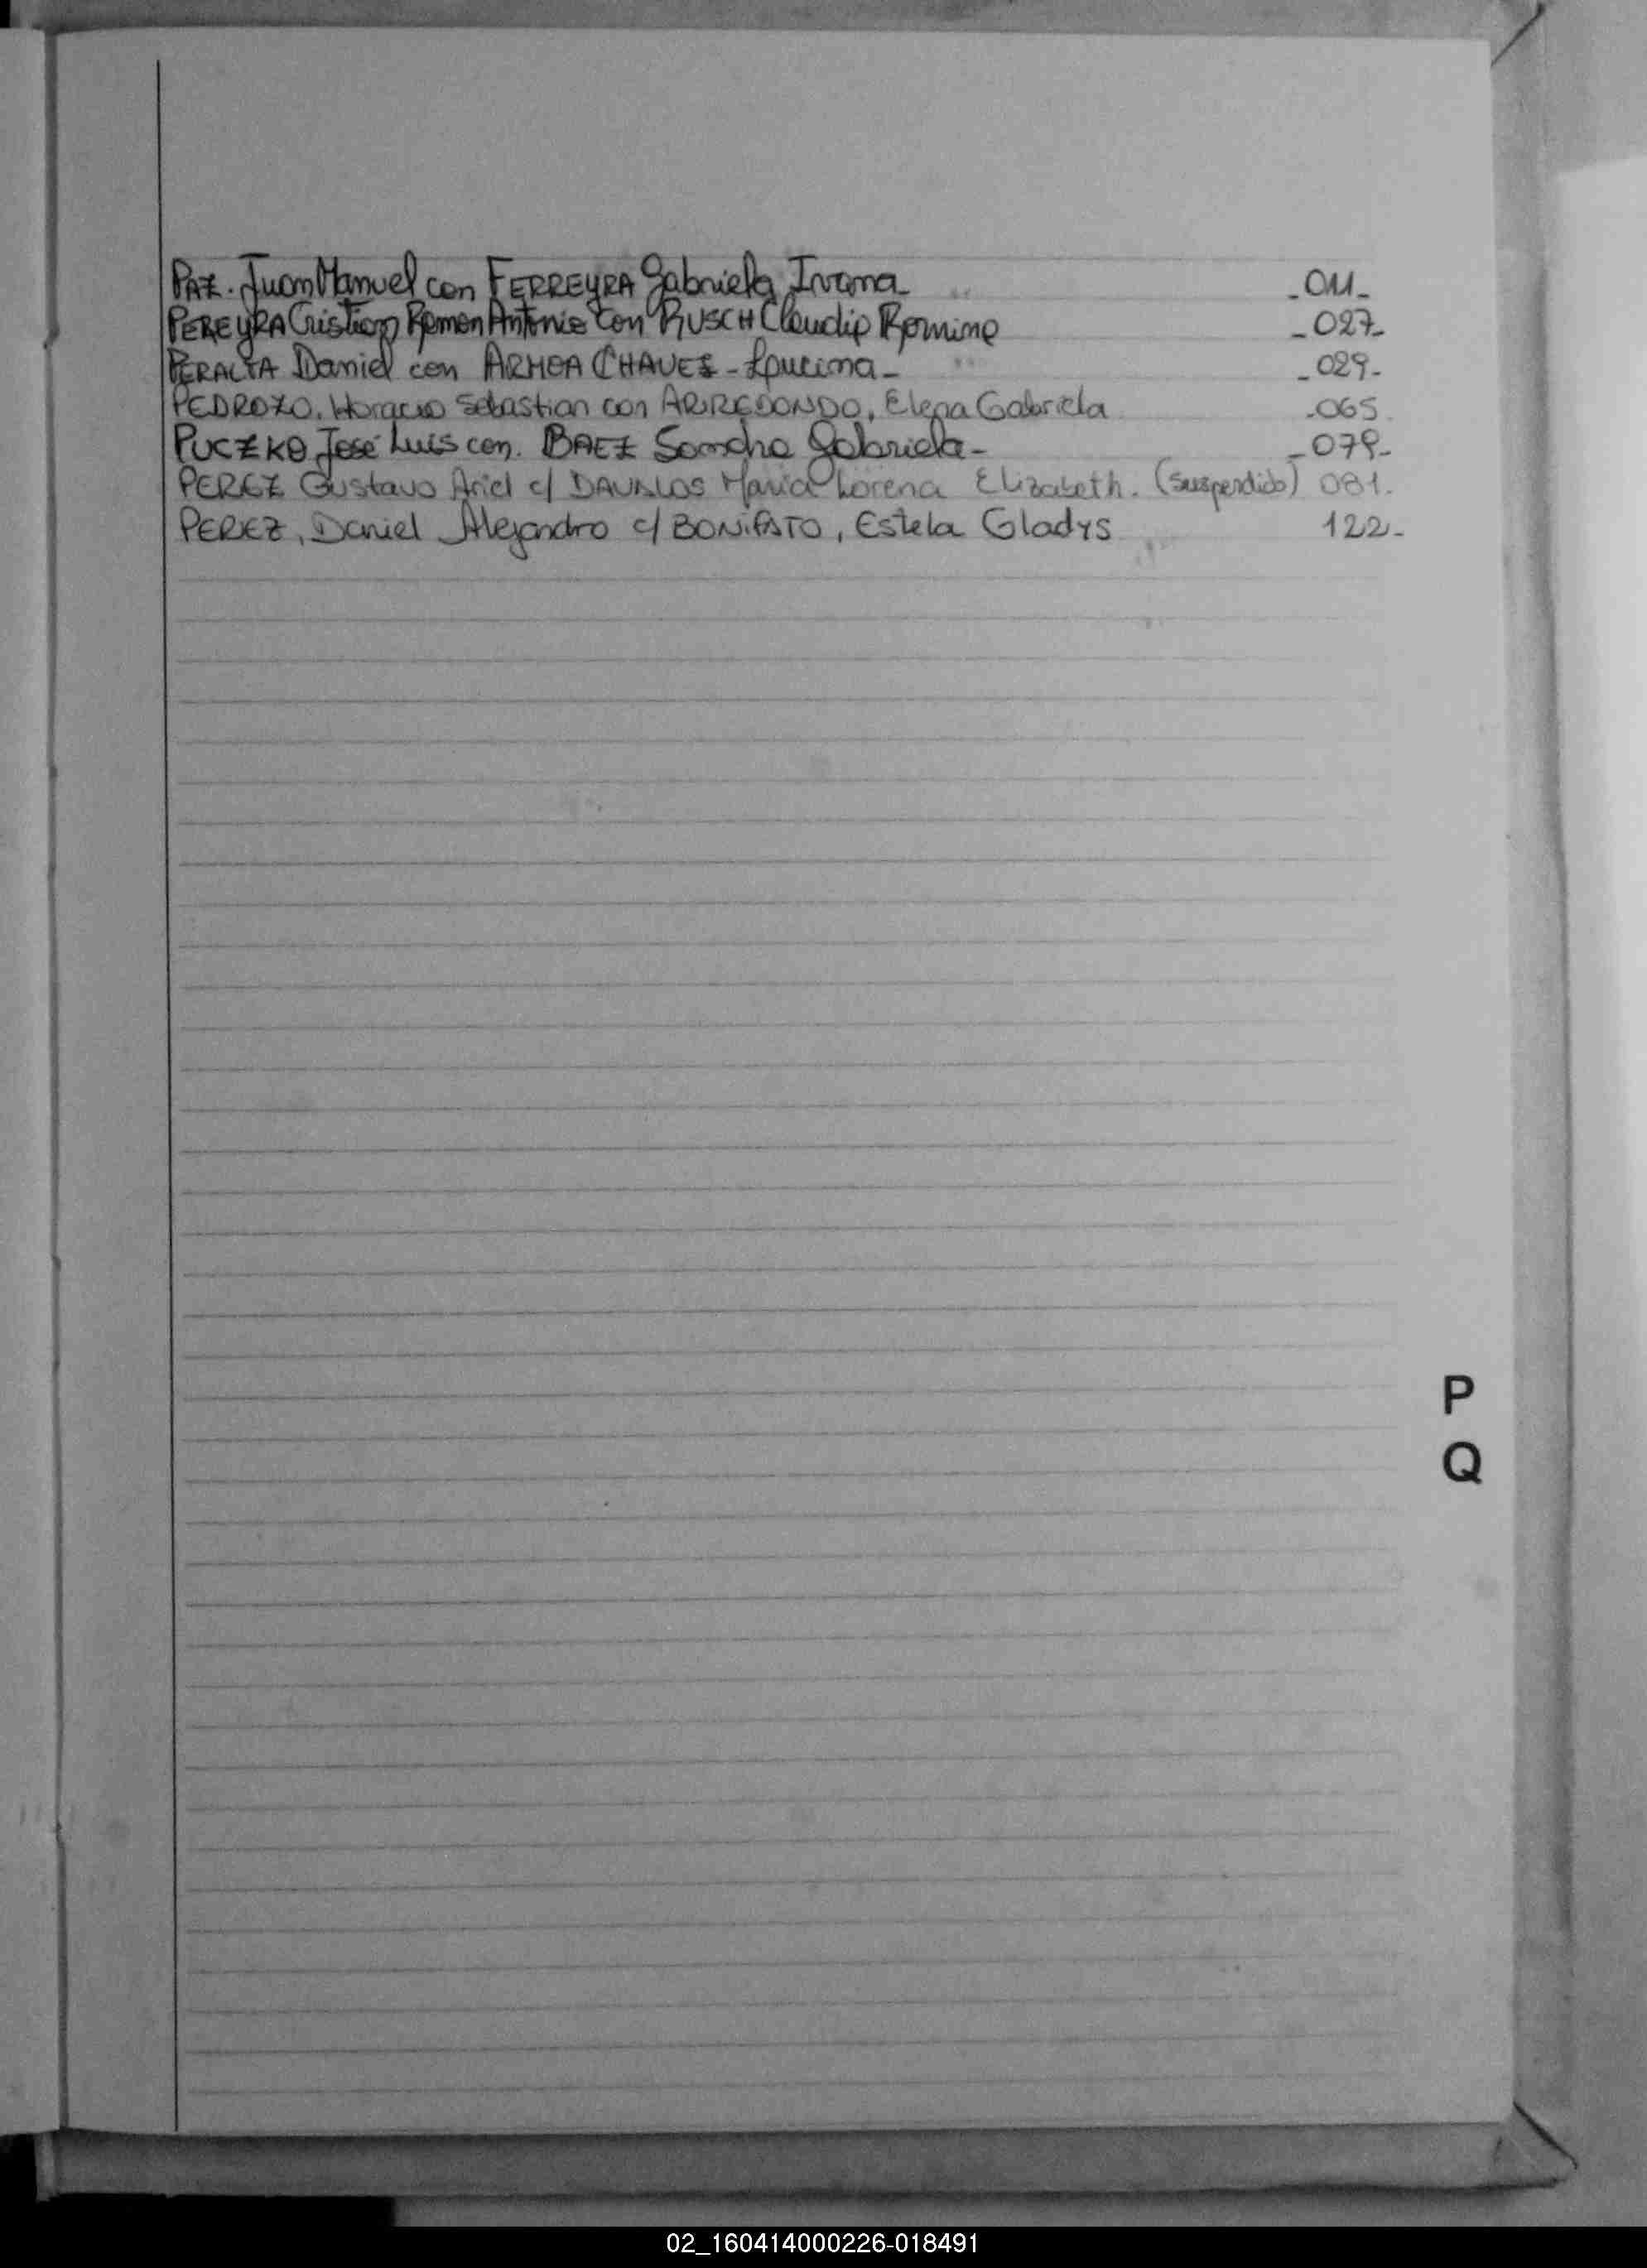 PAZ. Juan Manuel con FERREYRA Gabriela Ivana_ _011_
PEREYRA Cristian Ramon Antonio con RUSCH Claudia Romina _027_
PERALTA Daniel con ARMOA CHAVEZ - Laucina_ _029-
PEDROZO, Horacio Sebastian con ARREDONDO, Elena Gabriela .065.
PUCZKO José Luis con. BAEZ Sandra Gabriela- _079-
PEREZ Gustavo Ariel c/ DAVALOS Maria Lorena Elizabeth. (suspendido) 081.
PEREZ, Daniel Alejandro c/ BONIFATO, Estela Gladys 122-
P
Q
02_160414000226-018491